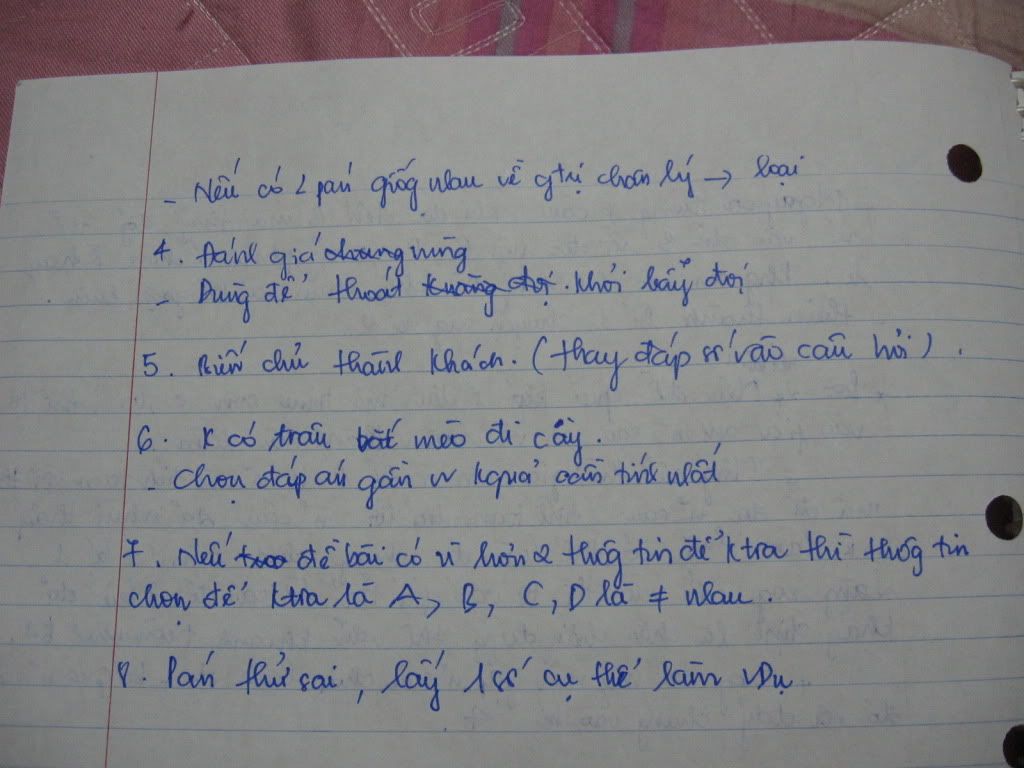 - Nếu có 2 pán giống nhau về gtrị chân lý → loại
4. Đánh giá chung riêng
- Dùng để thoát khỏi bẫy đợi
5. Biến chủ thành khách. (thay đáp số vào câu hỏi).
6. K có trâu bắt mèo đi cày.
- Chọn đáp án gần vs kquả cần tính nhất
7. Nếu đề bài có n hơn 2 thôg tin để ktra thì thôg tin
chọn để ktra là A, B, C, D là ≠ nhau.
8. Pán thử sai, lấy 1 số cụ thể làm vdụ